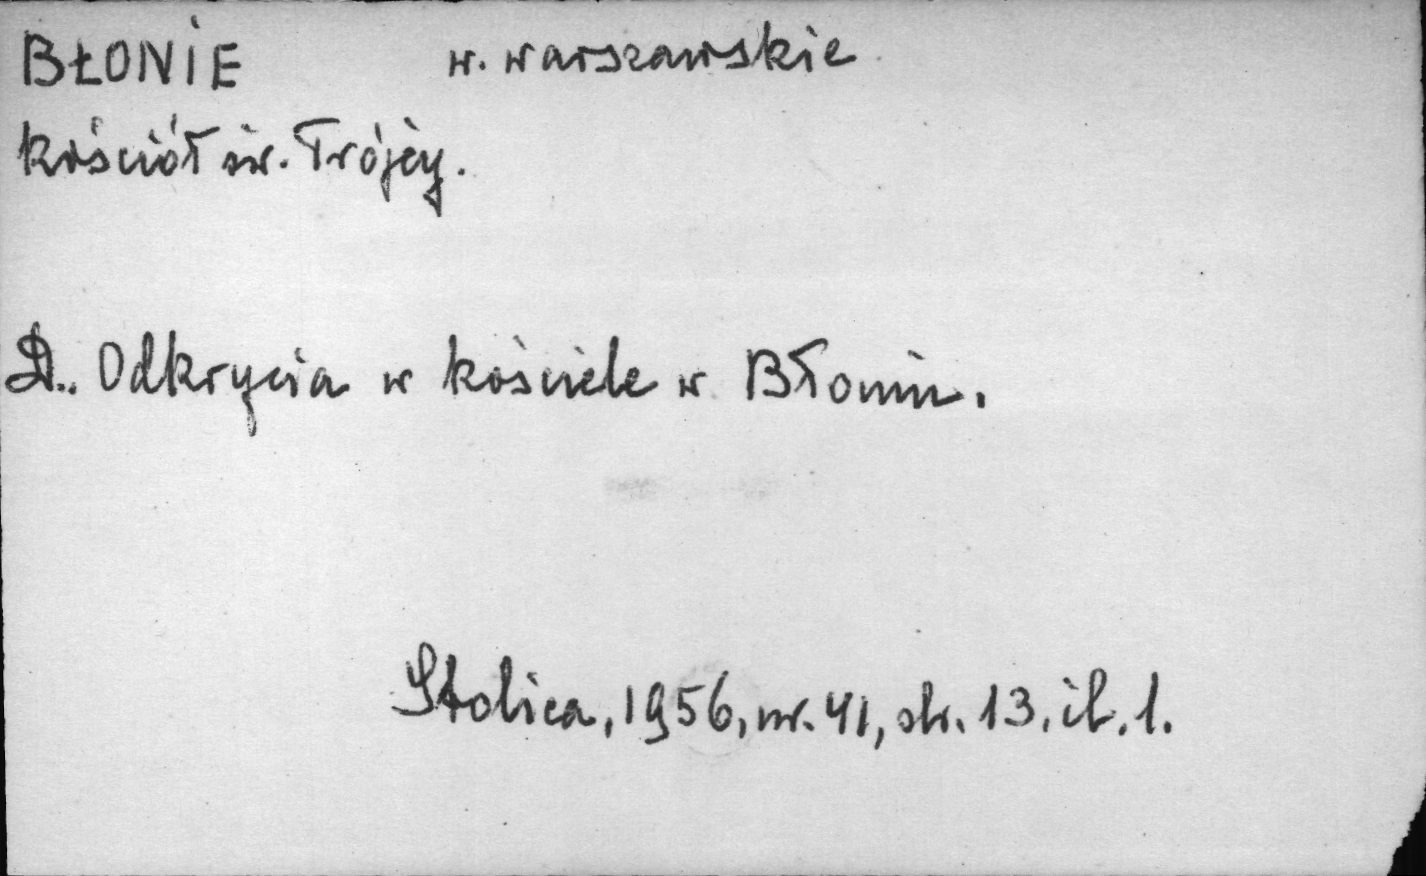 BŁONIE w. warszawskie
kościół św. Trójcy.
D.. Odkrycia w kościele w Błoniu.
Stolica, 1956, nr. 41, str. 13, il. 1.